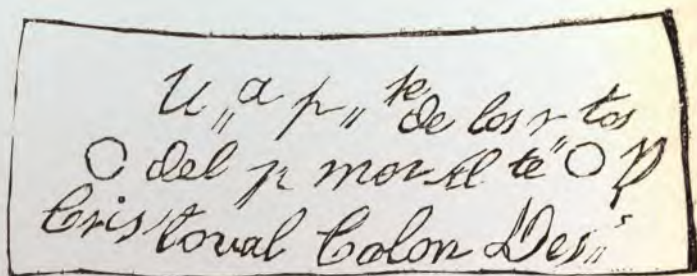 U,,a p,,te de los r tos
del p mer Al te" D
Cristoval Colon Des,,r